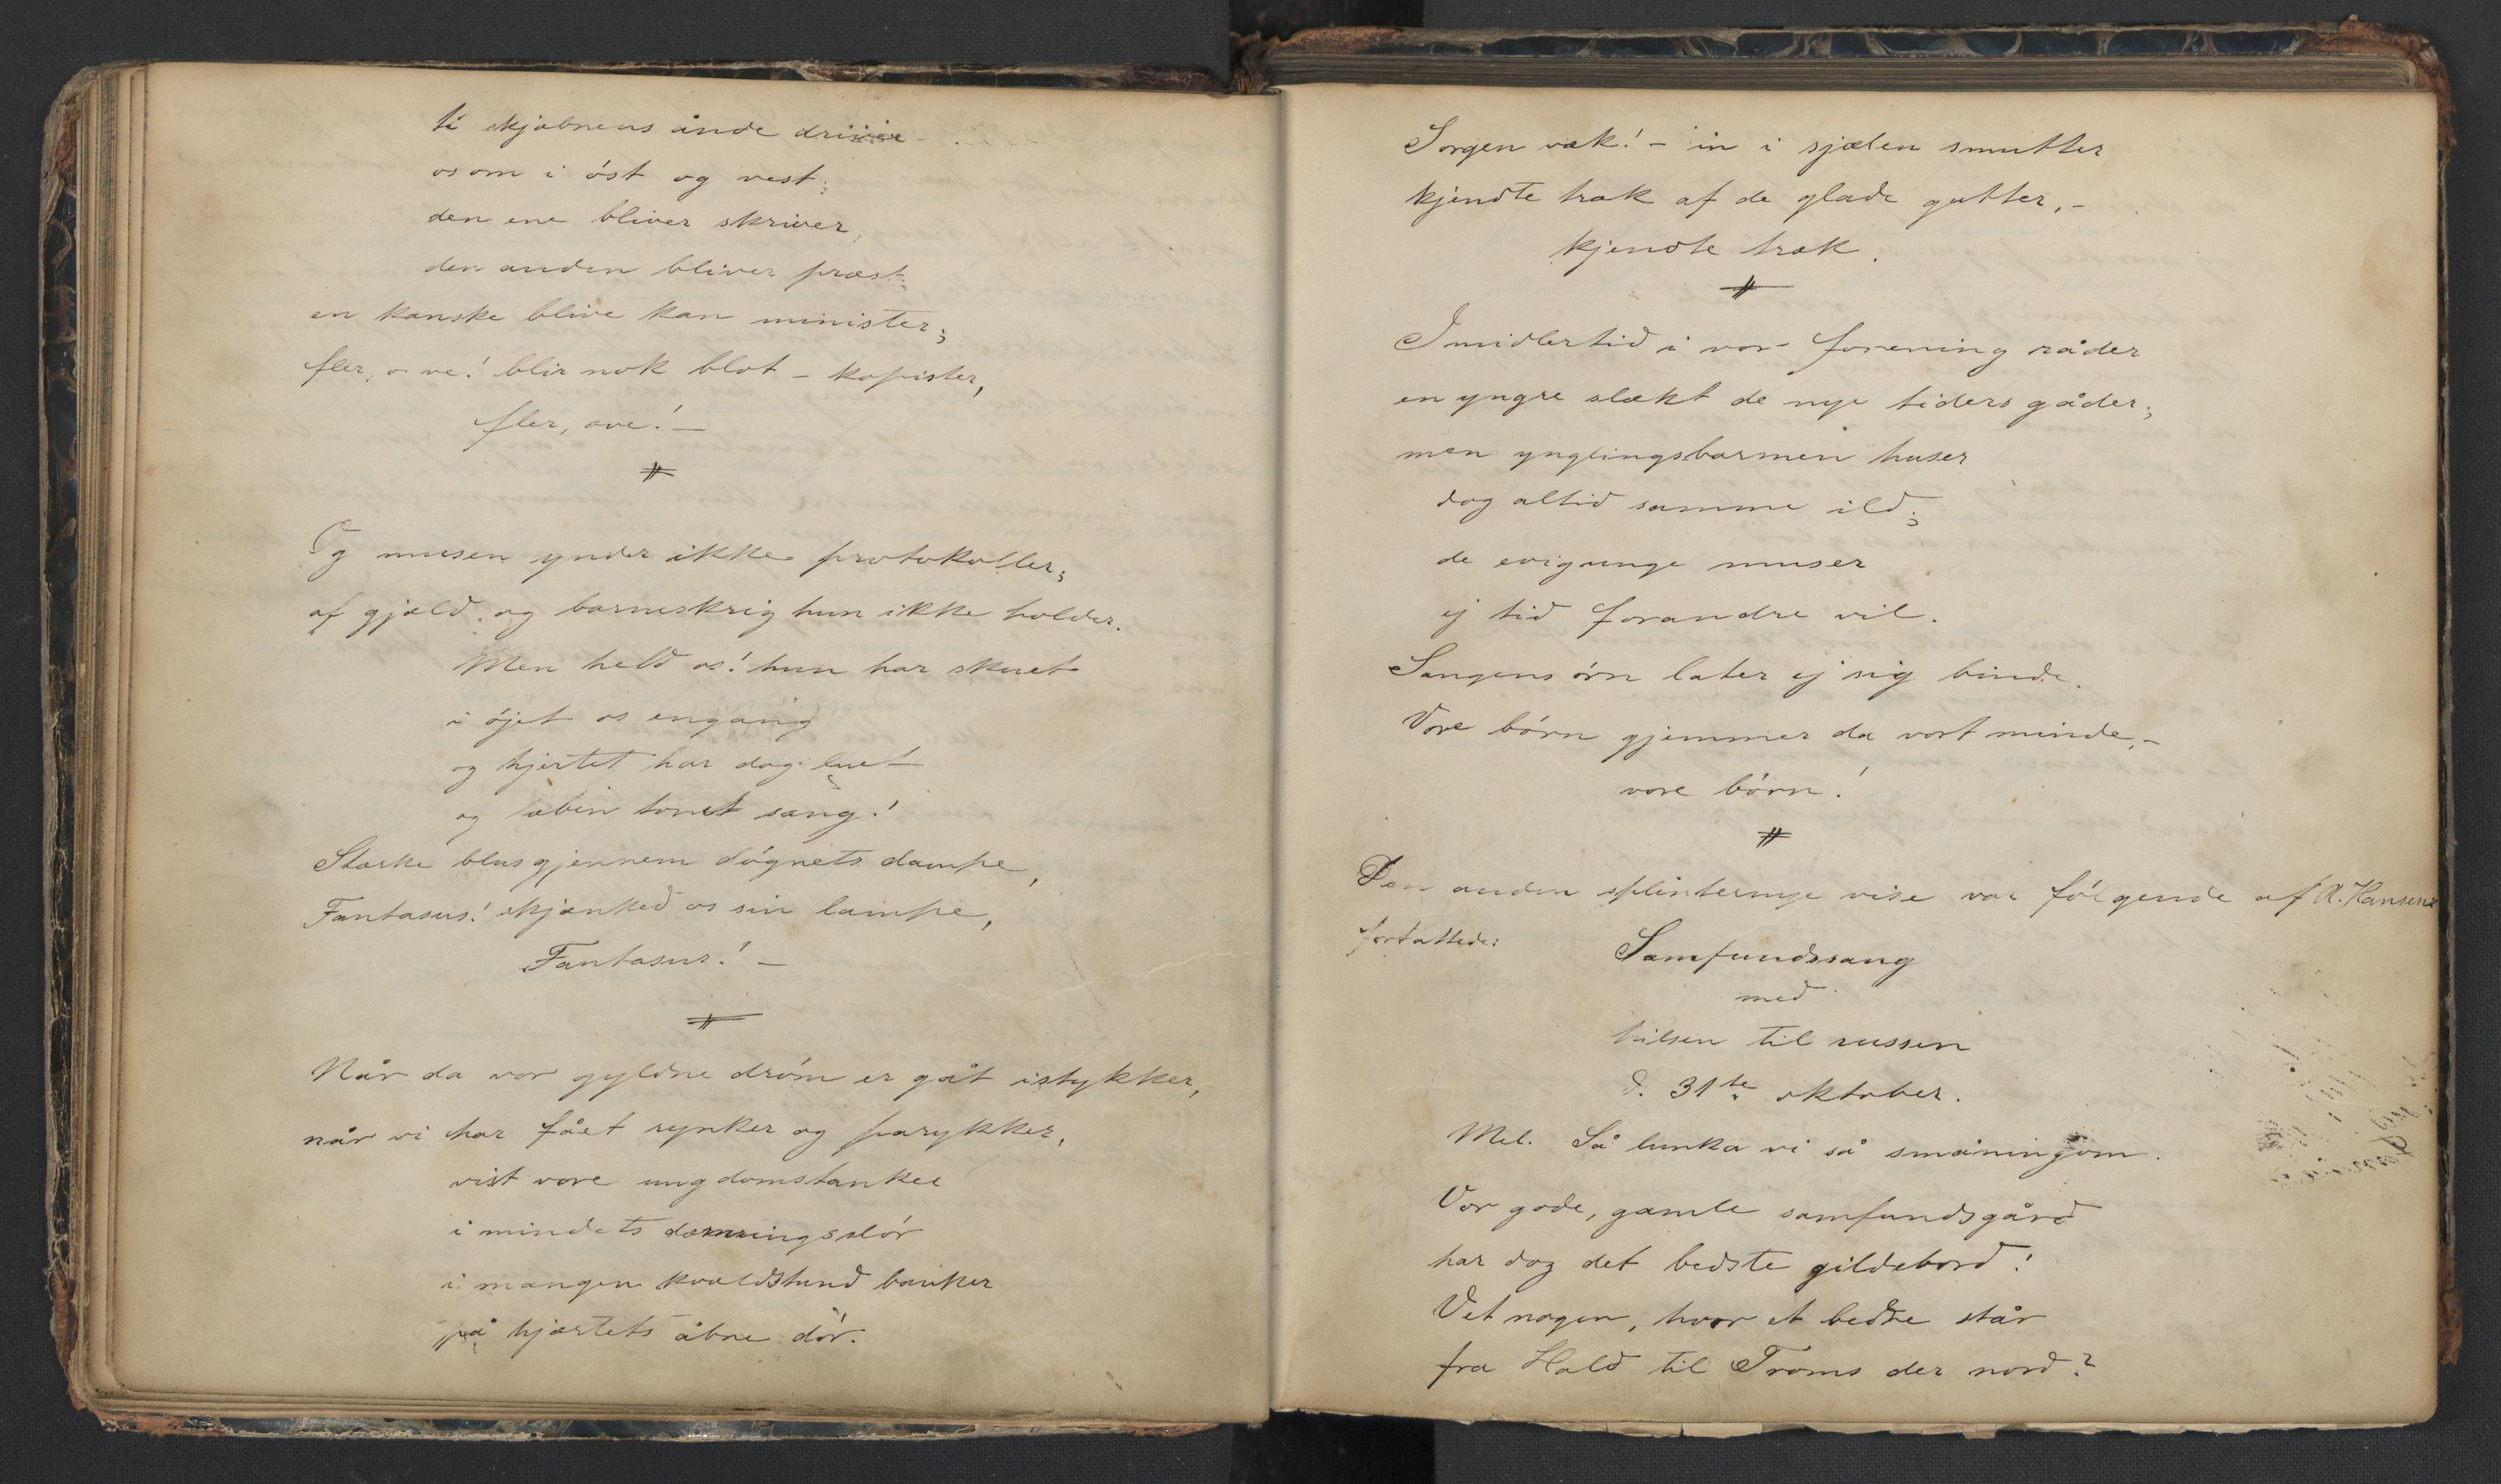 ti skjæbnens ånde driver
os om i óst og vest;
den ene bliver skriver,
den anden bliver præst;
en kanske blive kan minister;
fler, o ve! blir nok blot – kopister,
fler, ove! –
Og musen ynder ikke protokoller;
af gjæld og barneskrig hun ikke holder.
Men held os! hun har skuet
i öjet os engang
og hjertet har dog luet
og læben tonet sang!
Stærke blus gjennem dógnets dampe,
Fantasus! skjænked os sin lampe,
Fantasus! –
Når da vor gyldne dróm er gåt istykker,
når vi har fået rynker og parykker,
vist vore ungdomstanker
i mindets dæmringsslór
i mangen kvældstund banker
på hjærtets åbne dór.
Sorgen væk! – in i sjælen smutter
kjendte træk af de glade gutter, –
kjendte træk.
Imidlertid i vor forening råder
en yngre slækt de nye tiders gåder;
men ynglingsbarmen huser
dog altid samme ild;
de evigunge muser
ej tid forandre vil.
Sangens órn later ej sig binde.
Vore bórn gjemmer da vort minde, –
vore bórn!
Den anden splinternye vise var fólgende af A. Hansen
forfattede:
Samfundssang
med
hilsen til russen
d. 31te oktober.
Mel. Så lunka vi så småningom.
Vor gode, gamle samfundsgård
har dog det bedste gildebord!
Vet nogen, hvor et bedre står
fra Hald til Troms der nord?